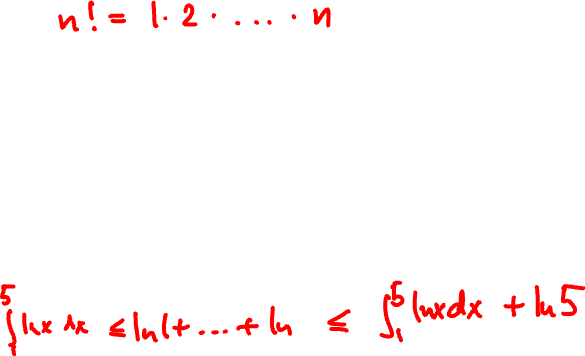 n! = 1 · 2 · .... · n
∫₁⁵ ln x dx ≤ ln 1 + ... + ln ≤ ∫₁⁵ ln x dx + ln 5